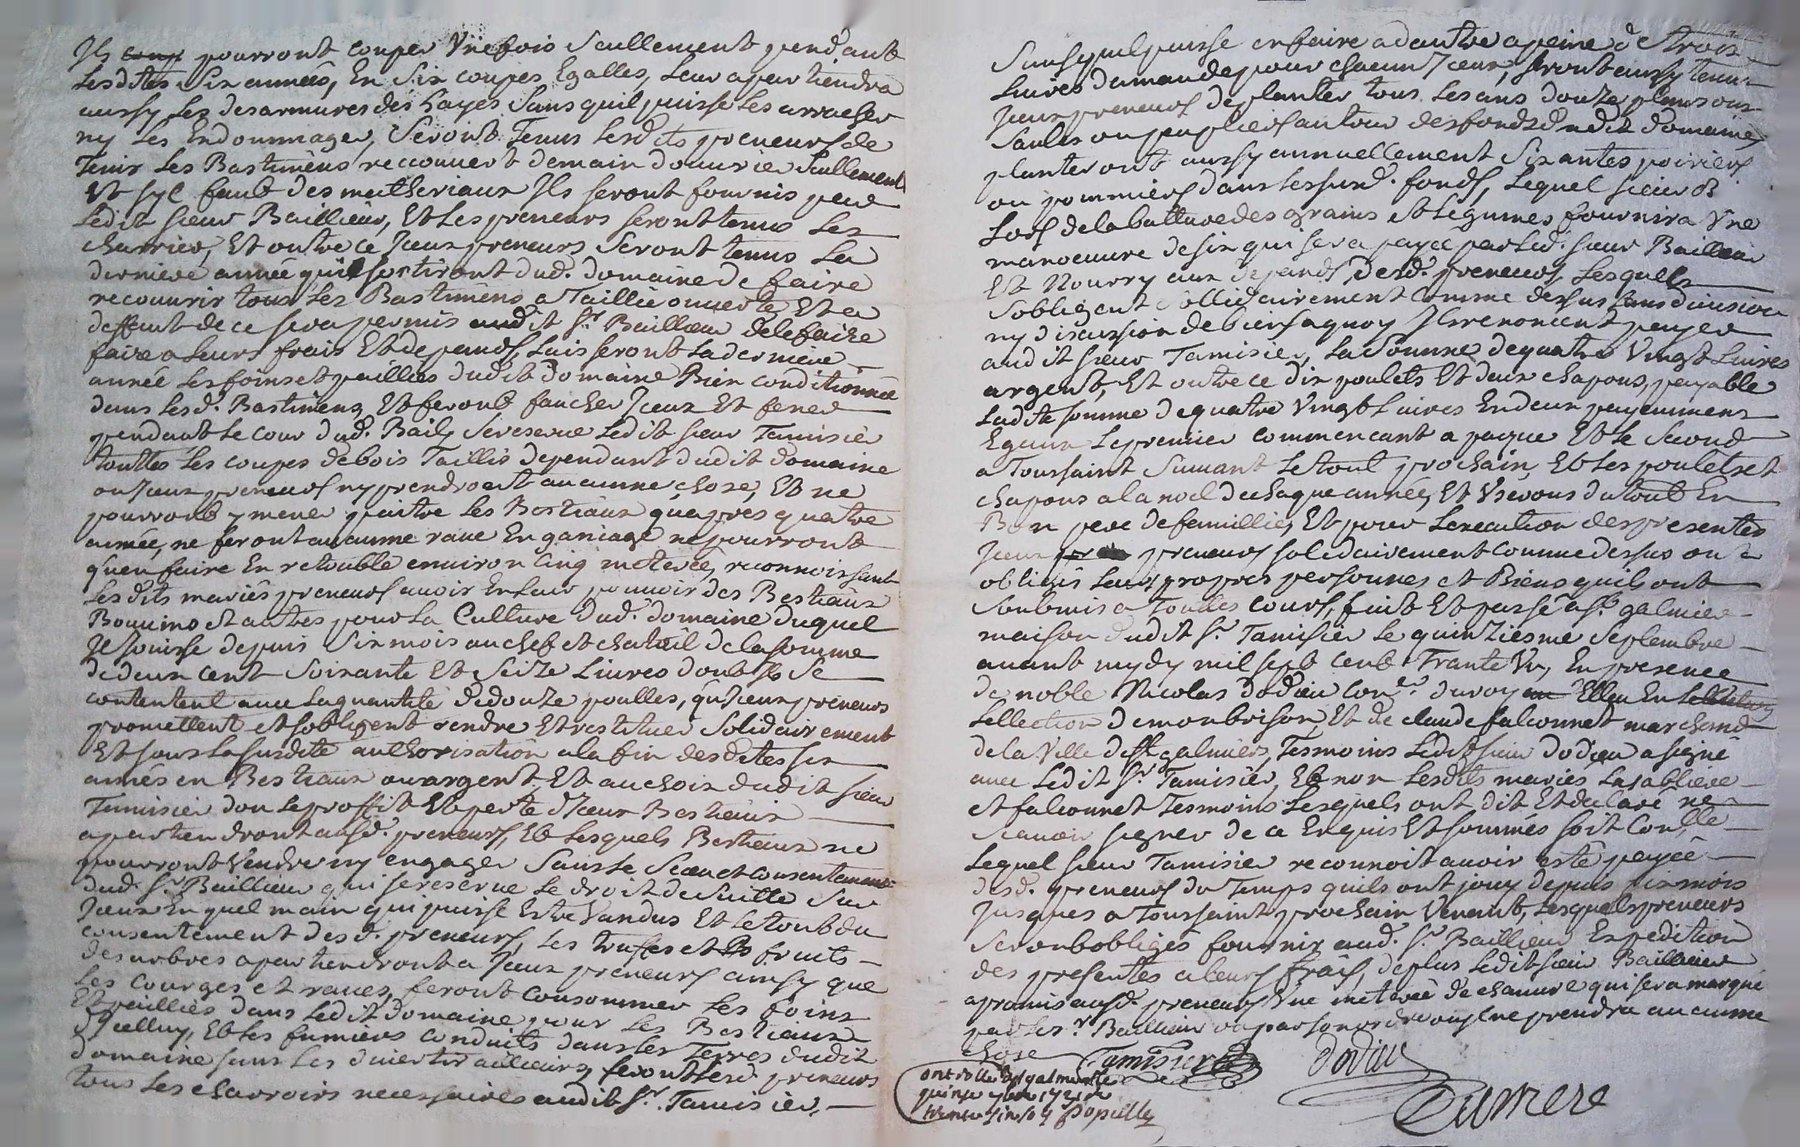 Ils pourront couper Une fois Seullement pendant
Lesdites Six années, En Six coupes Egalles, Leur apartiendra
aussy Les desarmures des hayes Sans quil puisse Les arracher
ny Les Endommager, Seront Tenus Lesdts preneurs de
Tenir Les Bastimens reccouvert demain douvrier Seullement
Et syl faut des matheriaux Ils seront fournis par
Ledit sieur Baillieur, Et Les preneurs seront tenus Les
charrier, Et outre ce Iceux preneurs Seront tenus La
derniere année quil sortiront dud. domaine de faire
recouvrir tous Les Bastimens a Taillie ouverte, Et a
deffaut de ce sera permis audit Sr. Baillieur delefaire
faire a Leurs frais Et depands, Lais seront La derniere
année Les foins et paillies dudit domaine Bien conditionnée
dans Lesd. Bastimens Et feront faucher Iceux Et fener
pendant Le cour dud. Bail, Se reserve Ledit sieur Tamisier
touttes Les coupes de bois Taillis dependant dudit domaine
ou Iceux preneurs ny prendront aucunne chose, Et ne
pourront y mener paitre Les Bestiaux quapres quatre
année, ne feront aucunne rave En garicage ne pourront
quen faire En retouble environ Cinq meterée, reconnoissant
Lesdits mariés preneurs avoir En Leur pouvoir des Bestiaux
Bouvino et autres pour La Culture dud. domaine duquel
Je Jouisse depuis Six mois au chef et chatail de La somme
de deux cent Soixante Et Seize Livres dont Ils Se
contentent avec La quantité de douze poulles, qu'Iceux preneurs
promettent et sobligent rendre Et restituer Solidairement
Et sous La susdite authorisation a La fin desdites six
année en Bestiaux ou argent Et au choix dudit sieur
Tamisier dou Le proffit Et perte d'Iceux Bestiaux
apartiendront ausd. preneurs, Et Lesquels Bestiaux ne
pourront Vendre ny engager Sans Le Sceu et consentement
dud. Sr. Baillieur qui se reserve Le droit de Suitte Sur
Iceux En quel main qui puisse Estre Vandus Et Le tout du
consentement desd. preneurs, Les truffes et Les fruits
des arbres apartiendront a Iceux preneurs ainsy que
Les Courges et raves, feront consommer Les foins
Et paillies dans Ledit domaine pour Les Bestiaux
d'Icelluy, Et Les fumiers conduits dans Les Terres dudit
domaine sans Les divertir aillieurs, feront Lesd. preneurs
tous Les charrois necessaires audit Sr. Tamisier,
Sans quil puisse en faire a dautre a peine de trois
Livres damande pour chacun Iceux, seront aussy tenus
Iceux preneurs de planter tous Les ans douze plansons
Saules ou peupliers autour des fonds dudit domaine
planteront aussy annuellement Six antes poiriers
ou pommiers dans Lesusd. fonds, Lequel sieur B
Lors de la batture des grains et Legumes fournira Une
manoeuvre de six qui sera payée par Led. sieur Baillieur
Et Nourry aux depands desd. preneurs Lesquels
Sobligent Sollidairement Comme dessus sans division
ny discussion de biens aquoy Ils renoncent payer
audit sieur Tamisier, La Somme de quatre Vingt Livres
argent, Et outre ce dix poulets Et deux chapons, payable
Ladite somme de quatre Vingt Livres En deux payemmens
Egaux Le premier commencant a paque Et Le Second
a Toussaint Suivant Le tout prochain Et Les poulets et
chapons a la noel de chaque année, Et Vserons du tout En
Bon pere de famillie, Et pour Lexecution des presentes
Iceux preneurs solidairement comme dessus on
obligés Leurs propres personnes et Biens quils ont
Soubmis a Touttes cours, fait Et passé a St. galmier
maison dudit Sr. Tamisier Le quinziesme Septembre
avant mydy mil sept cent Trante Un, En presence
de noble Nicolas dodieu Coner. du roy Elleu En
Lellection de montbrison, Et de claude falconnet marchand
de la Ville de St galmier, Tesmoins Ledit sieur dodieu a signé
avec Ledit Sr. Tamisier, Et non Lesdits mariés Lasabliere
et falconnet Tesmoins Lesquels ont dit Et declaré ne
Scavoir signer de ce Enquis Et sommés soit Conlle
Lequel sieur Tamisier reconnoit avoir esté payée
desd. preneurs du Temps quils ont jouy depuis six mois
Jusques a Toussaint prochain Venant, Lesquels preneurs
Seront obligés fournir aud. Sr. Baillieur Expedition
des presentes a Leurs frais, de plus Ledit sieur Baillieur
a promis ausd. preneurs Une meterée de chanvre qui sera marqué
par Le sr. Baillieur ou par son ordre ou Il ne prendra aucunne
chose Tamisier dodieu
ontrollé a St galmier le
quinze 7bre 1731 R
trente six s Popielle